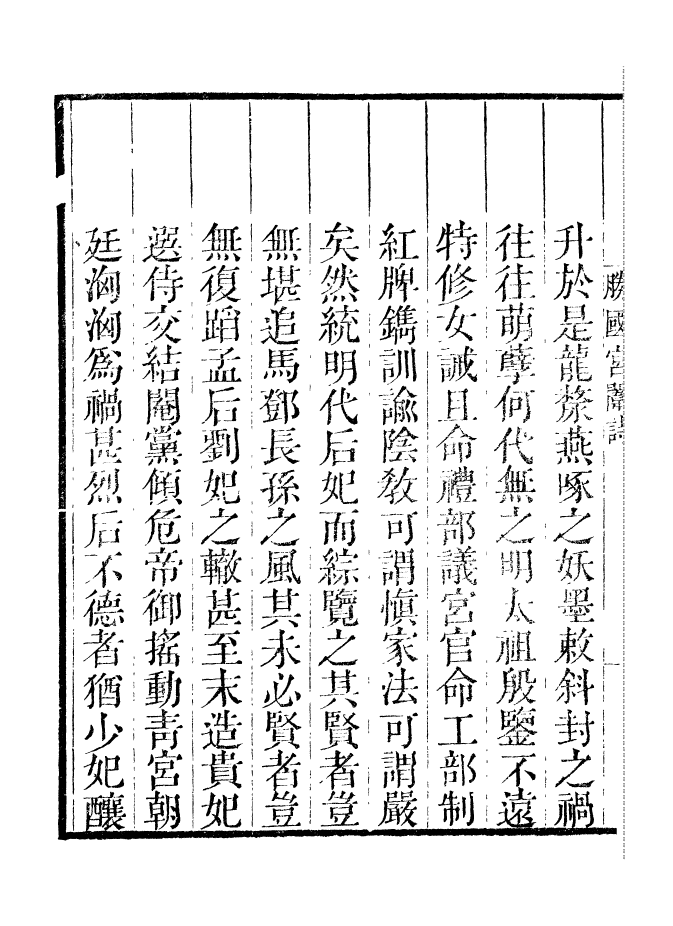 勝國宮闈詩
一
升於是龍漦燕啄之妖墨敕斜封之禍
往往萌孽何代無之明太祖殷鑒不遠
特修女誡且命禮部議宮官命工部制
紅牌鐫訓諭陰敎可謂愼家法可謂嚴
矣然統明代后妃而綜覽之其賢者豈
無堪追馬鄧長孫之風其未必賢者豈
無復蹈孟后劉妃之轍甚至末造貴妃
選侍交結閹黨傾危帝御搖動靑宮朝
廷洶洶爲禍甚烈后不德者猶少妃釀